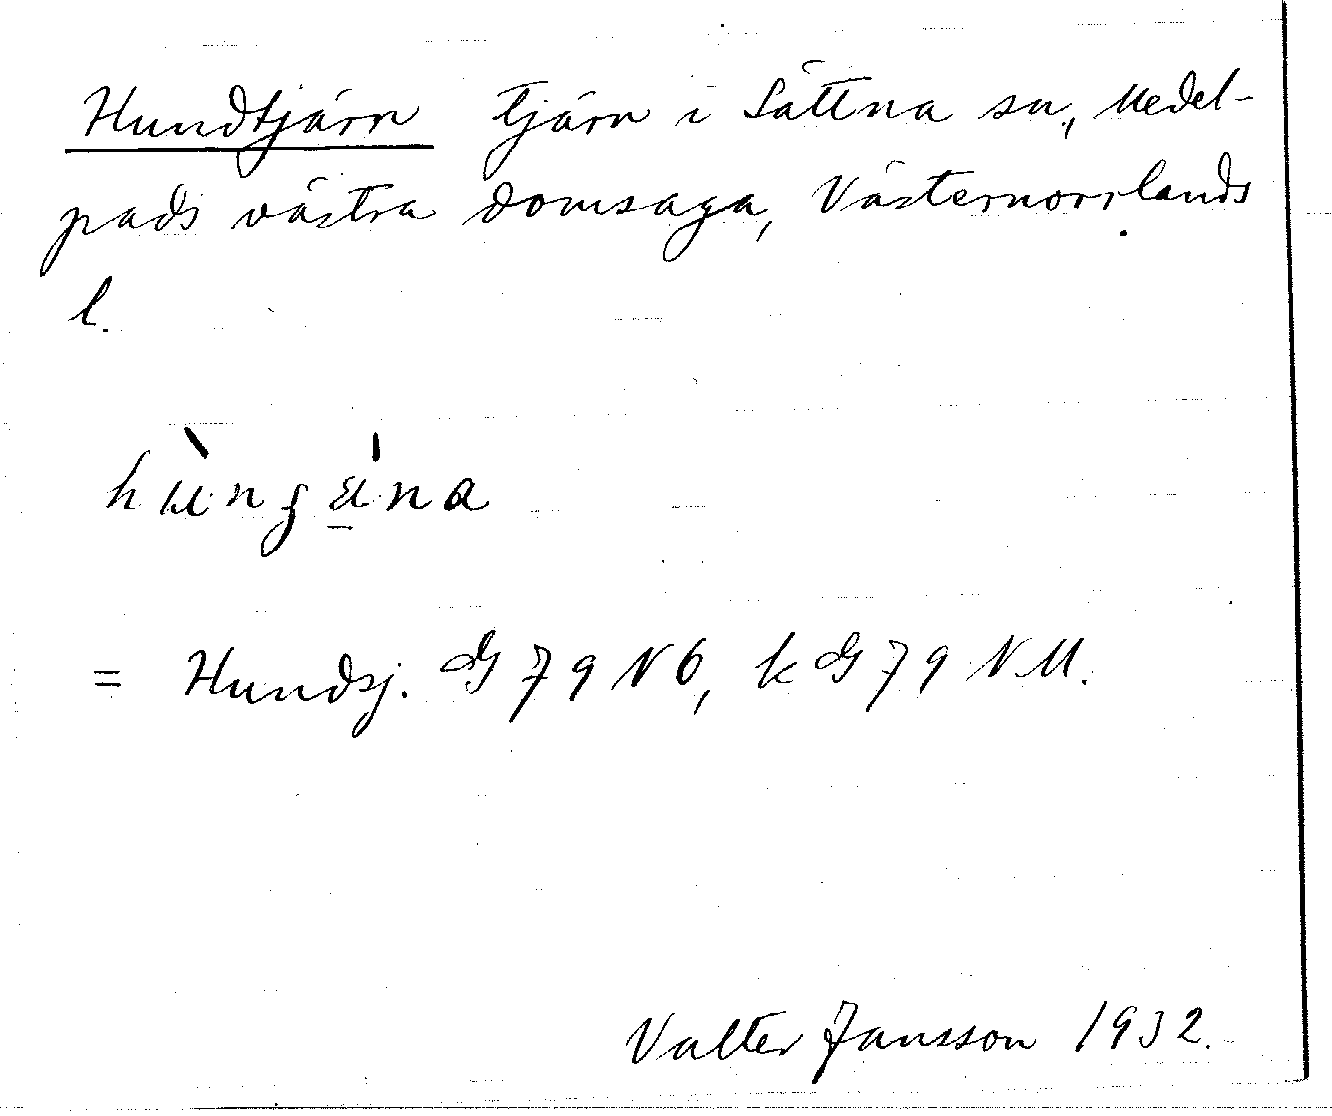 Hundtjärn tjärn i Sättna sn, Medel-
pads västra domsaga, Västernorrlands
l.
= Hundsj. G 79 N Ö, k G 79 N M.
Valter Jansson 1932.